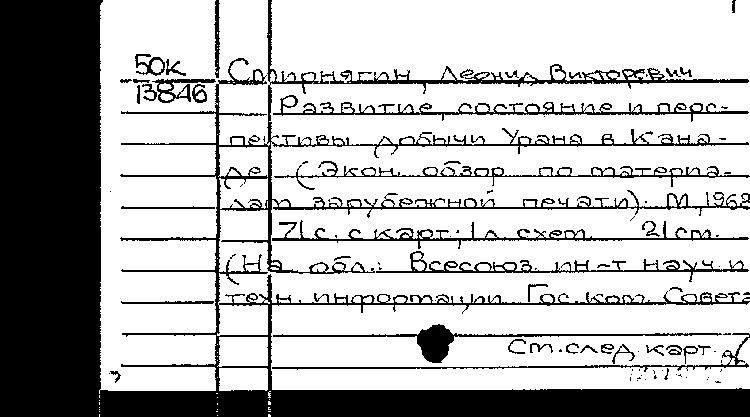 50к Смирнягин, Леонид Викторевич
13846 Развитие, состояние и перс-
пективы добычи Урана в Кана-
де (Экон. обзор по материа-
лам зарубежной печати). М, 1962
71 с. с карт.; 1 л схем 21 см.
(На обл.: Всесоюз. ин-т науч и
техн. информации Гос. ком. Совета
См. след. карт.